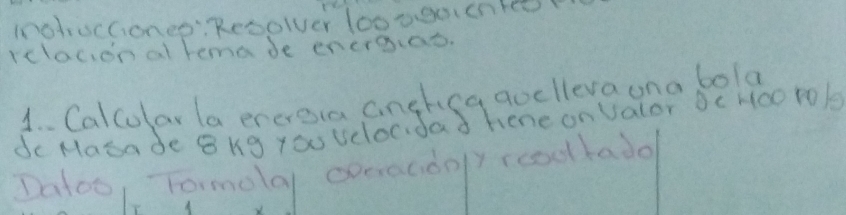 Instrucciones: Resolver los siguientes
relación al tema de energias.
1.. Calcular la energia cinetica que lleva una bola
de Masa de 8 kg y su velocidad tiene un valor de 400 m/s
Datos, Formula, operación y resultado